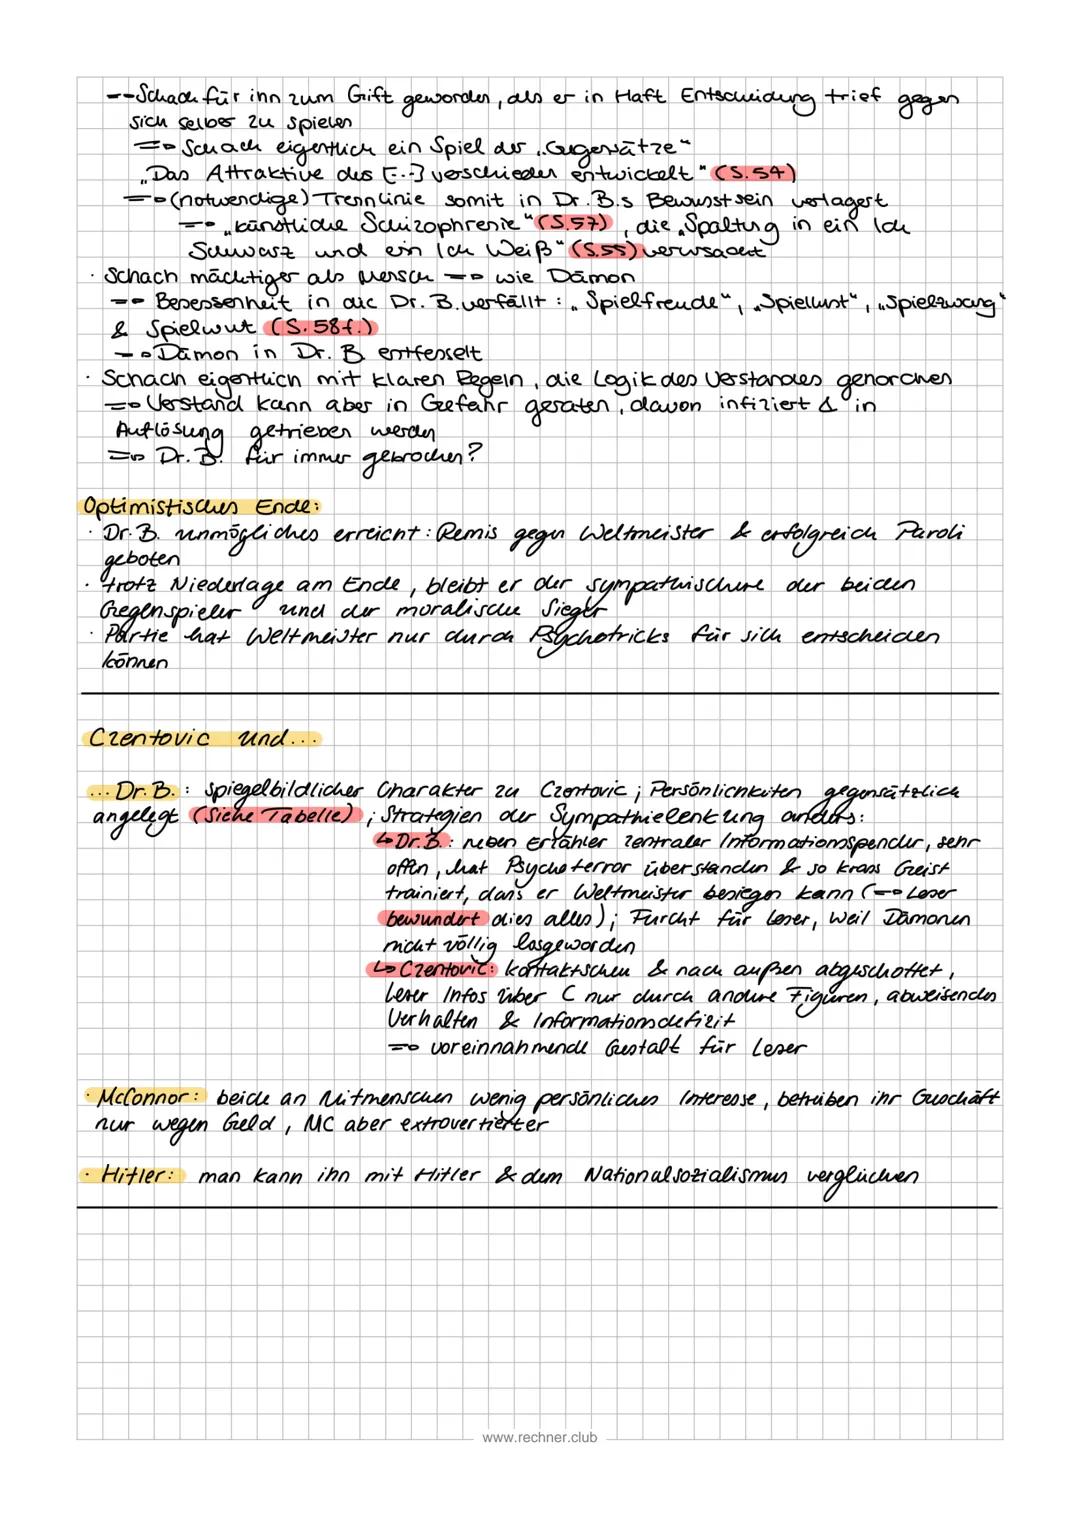 --Schach für ihn zum Gift geworden, als er in Haft Entscheidung trief gegen
sich selber zu spielen
=> Schach eigentlich ein Spiel der „Gegensätze"
„Das Attraktive des [...] verschieden entwickelt" (S.54)
=> (notwendige) Trennlinie somit in Dr. B.s Bewusstsein verlagert
=> „künstliche Schizophrenie" (S.57), die „Spaltung in ein Ich
Schwarz und ein Ich Weiß" (S.55) verursacht
· Schach mächtiger als Mensch => wie Dämon
=> Besessenheit in die Dr. B. verfällt: „Spielfreude", „Spiellust", „Spielzwang"
& Spielwut (S. 58f.)
-> Dämon in Dr. B entfesselt
· Schach eigentlich mit klaren Regeln, die Logik des Verstandes gehorchen
=> Verstand kann aber in Gefahr geraten, davon infiziert & in
Auflösung getrieben werden
=> Dr. B. für immer gebrochen?
Optimistisches Ende:
· Dr. B. unmögliches erreicht: Remis gegen Weltmeister & erfolgreich Paroli
geboten
· trotz Niederlage am Ende, bleibt er der sympathischere der beiden
Gegenspieler und der moralische Sieger
· Partie hat Weltmeister nur durch Psychotricks für sich entscheiden
können
Czentovic und...
... Dr. B.: spiegelbildlicher Charakter zu Czentovic; Persönlichkeiten gegensätzlich
angelegt (Siehe Tabelle); Strategien der Sympathielenkung anders:
↳ Dr. B.: neben Erzähler zentraler Informationsspender, sehr
offen, hat Psychoterror überstanden & so krass Geist
trainiert, dass er Weltmeister besiegen kann (=> Leser
bewundert dies alles); Furcht für Leser, weil Dämonen
nicht völlig losgeworden
↳ Czentovic: kontaktscheu & nach außen abgeschottet,
Leser Infos über C nur durch andere Figuren, abweisendes
Verhalten & Informationsdefizit
=> voreinnahmende Gestalt für Leser
· McConnor: beide an Mitmenschen wenig persönliches Interesse, betreiben ihr Geschäft
nur wegen Geld, MC aber extrovertierter
· Hitler: man kann ihn mit Hitler & dem Nationalsozialismus vergleichen
www.rechner.club